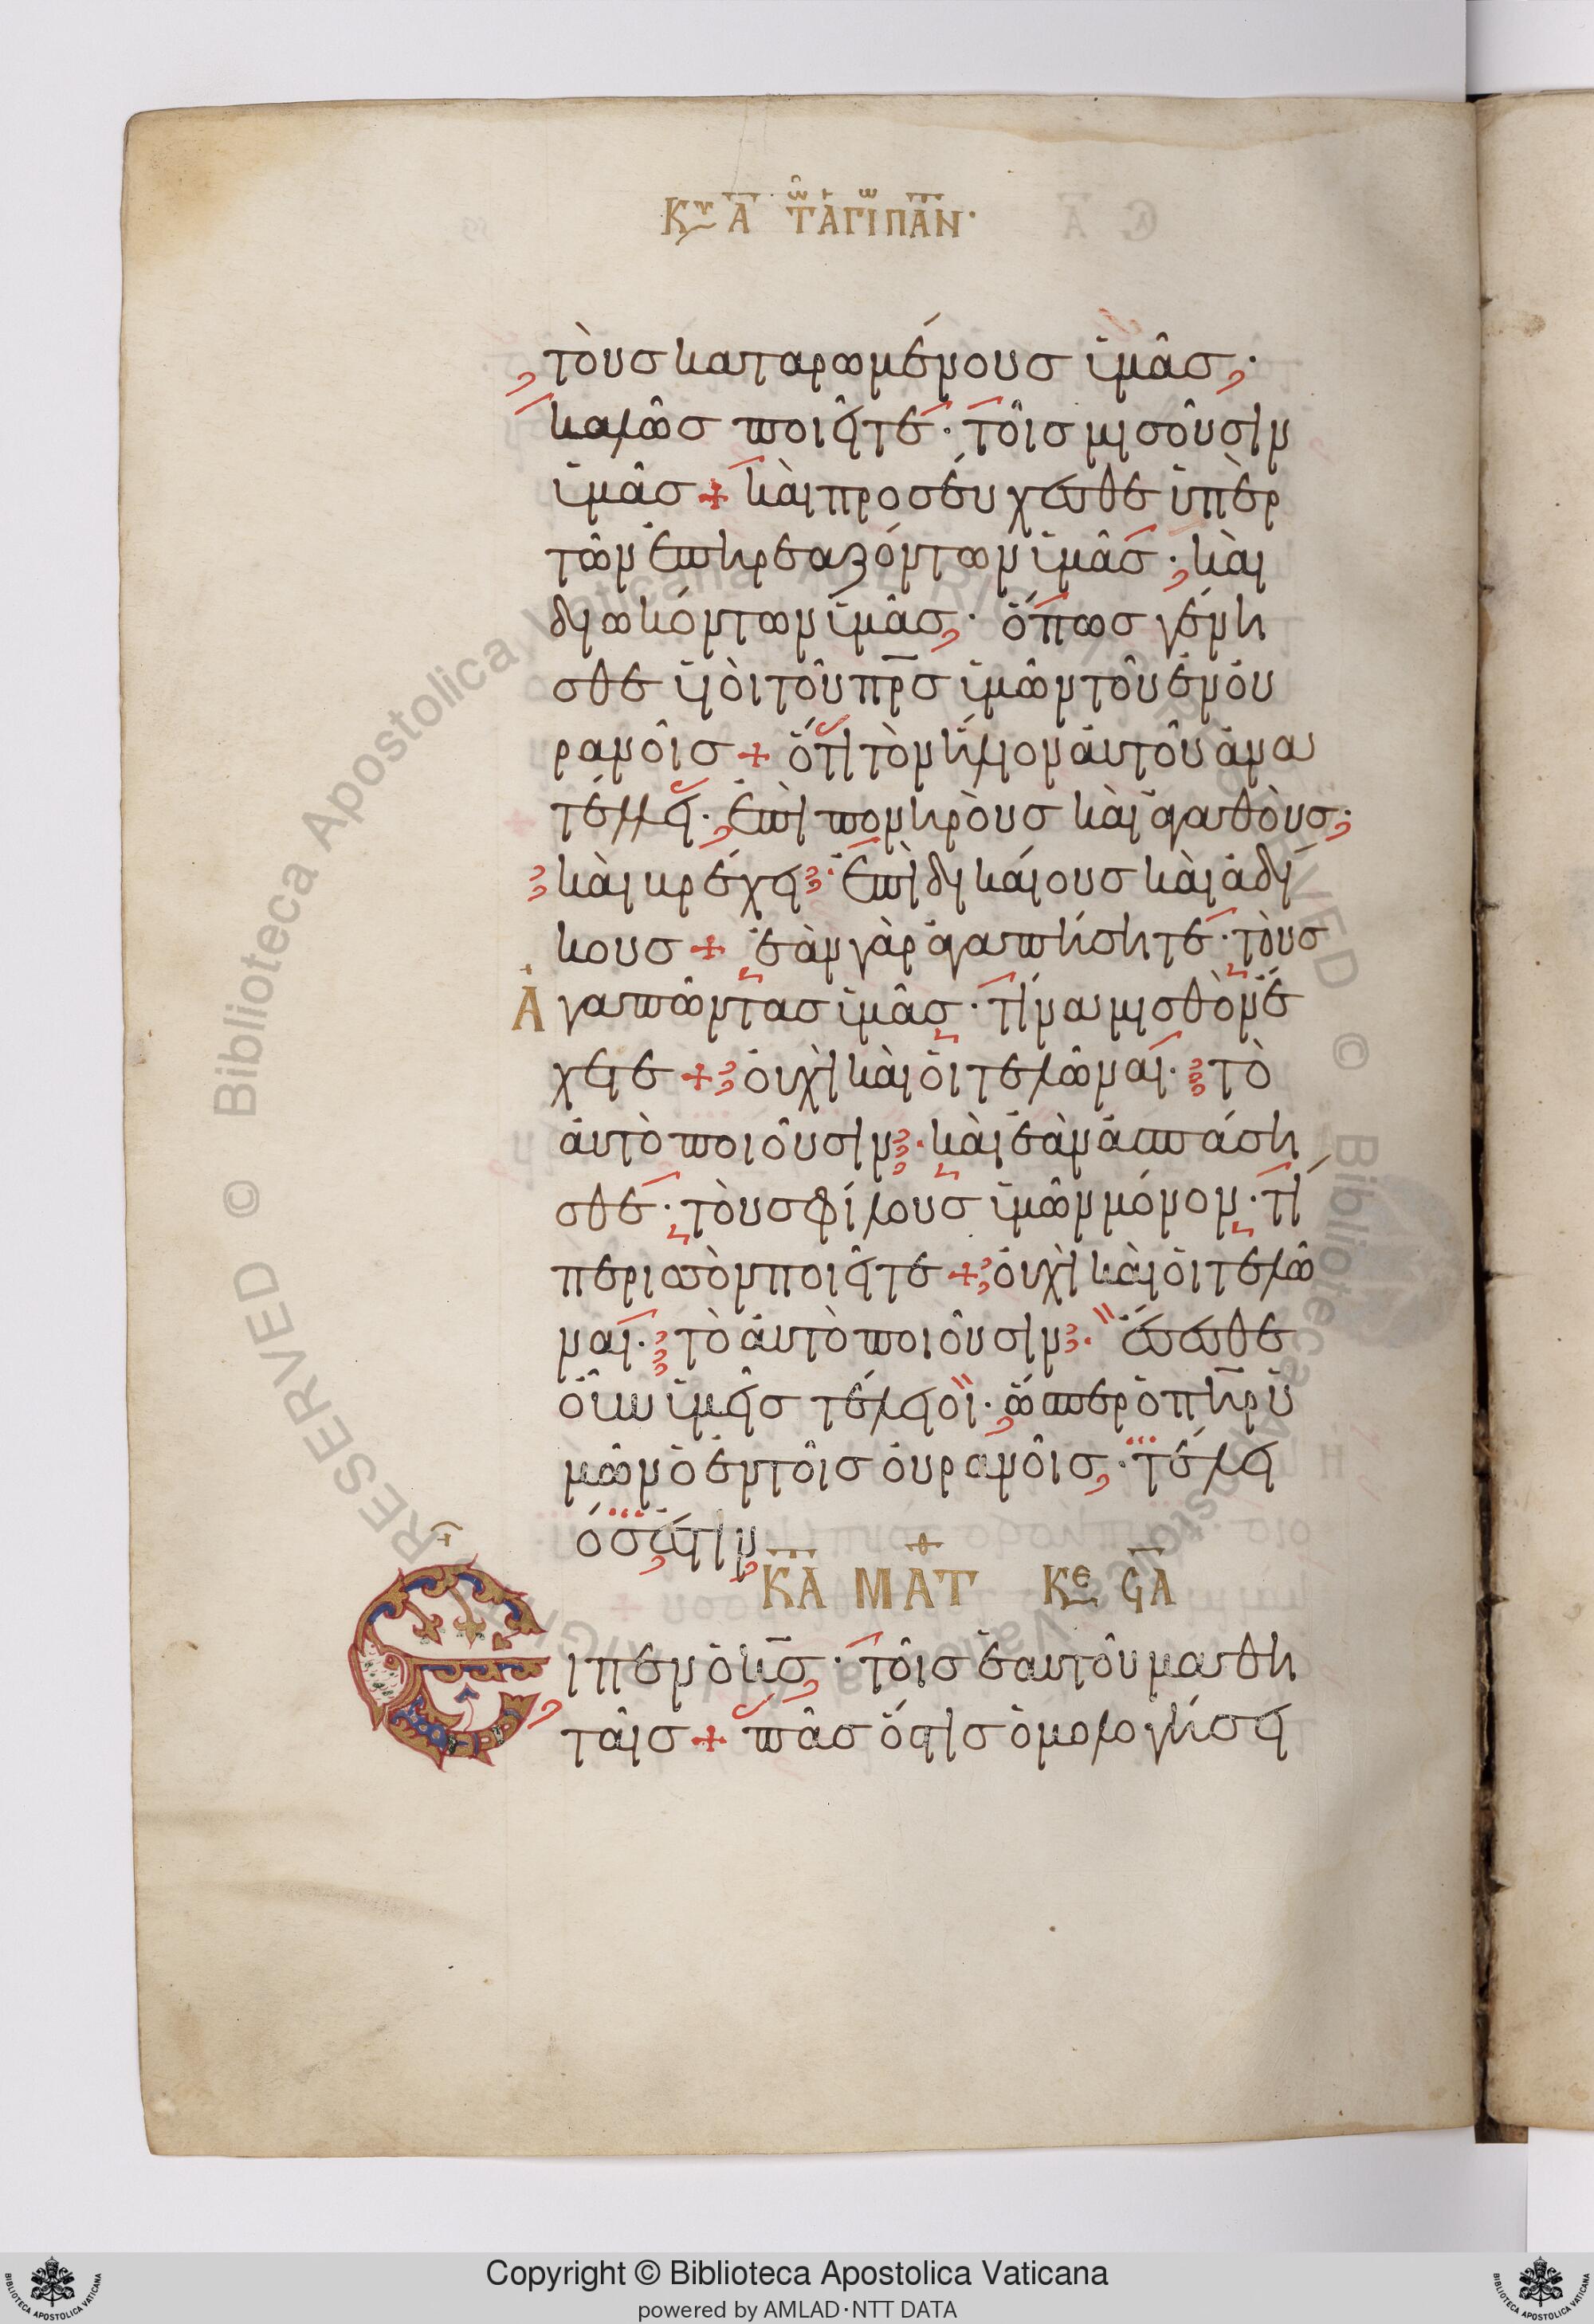 Κυ Α ΤΩ ΑΓΙ ΠΑΝ·
τοὺσ καταρωμένουσ ὑμᾶσ·
καλῶσ ποιεῖτε· τοῖσ μισοῦσιν
ὑμᾶσ + καὶ προσεύχεσθε ὑπὲρ
τῶν ἐπηρεαζόντων ὑμᾶσ· καὶ
διωκόντων ὑμᾶσ· ὅπωσ γένη
σθε υἱοὶ τοῦ πρσ ὑμῶν τοῦ ἐν οὐ
ρανοῖσ + ὅτι τὸν ἥλιον αὐτοῦ ἀνα
τέλλει· ἐπὶ πονηροὺσ καὶ ἀγαθούσ·
καὶ βρέχει· ἐπὶ δικαίουσ καὶ ἀδί
κουσ + ἐὰν γὰρ ἀγαπήσητε· τοὺσ
ἀγαπῶντασ ὑμᾶσ· τίνα μισθὸν ἔ
χετε + οὐχὶ καὶ οἱ τελῶναι· τὸ
αὐτὸ ποιοῦσιν· καὶ ἐὰν ἀσπάση
σθε· τοὺσ φίλουσ ὑμῶν μόνον· τί
περισσὸν ποιεῖτε + οὐχὶ καὶ οἱ τελῶ
ναι· τὸ αὐτὸ ποιοῦσιν· ἔσεσθε
οὖν ὑμεῖσ τέλειοι· ὥσπερ ὁ πηρ ὑ
μῶν ὁ ἐν τοῖσ οὐρανοῖσ· τέλει
όσ ἐστιν
Κ Α ΜΑΤΘ Κε ϚΑ
Εἶπεν ὁ κσ· τοῖσ ἑαυτοῦ μαθη
ταῖσ + πᾶσ ὅστισ ὁμολογήσει
Copyright © Biblioteca Apostolica Vaticana
powered by AMLAD·NTT DATA